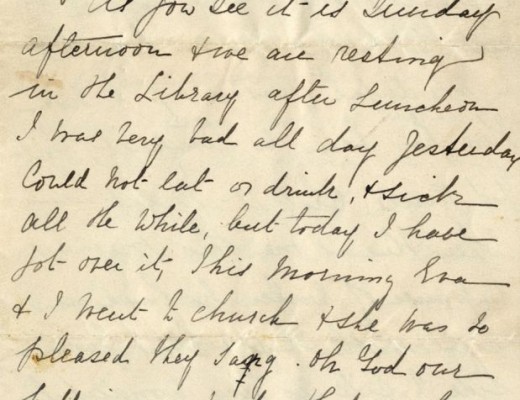 As you see it is Sunday
afternoon & we are resting
in the Library after Luncheon
I was very bad all day Yesterday
Could not eat or drink, & sick
all the while, but today I have
got over it, This Morning Eva
& I went to church & she was so
pleased they sang. Oh God our